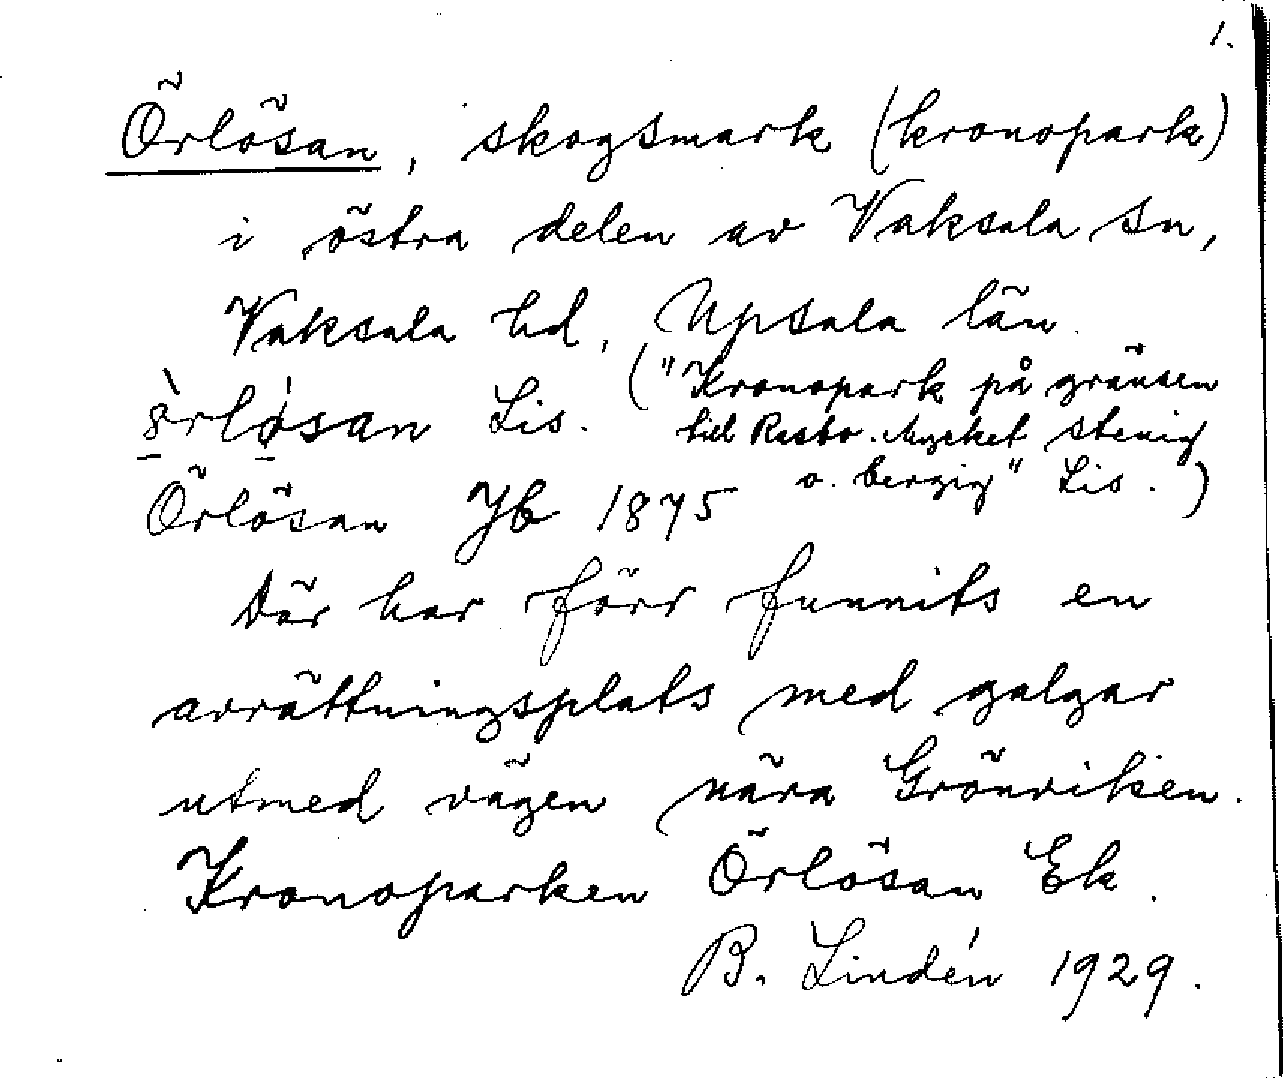 1.
Örlösan, skogsmark (kronopark)
i östra delen av Vaksala sn,
Vaksala hd, Upsala län.
("Kronopark på gränsen
till Rasbo. Mycket stenig
o. bergig" Lis.)
Lis.
Örlösan Jb 1875
Där har förr funnits en
avrättningsplats med galgar
utmed vägen nära Grönviken.
Kronoparken Örlösan Ek.
B. Lindén 1929.